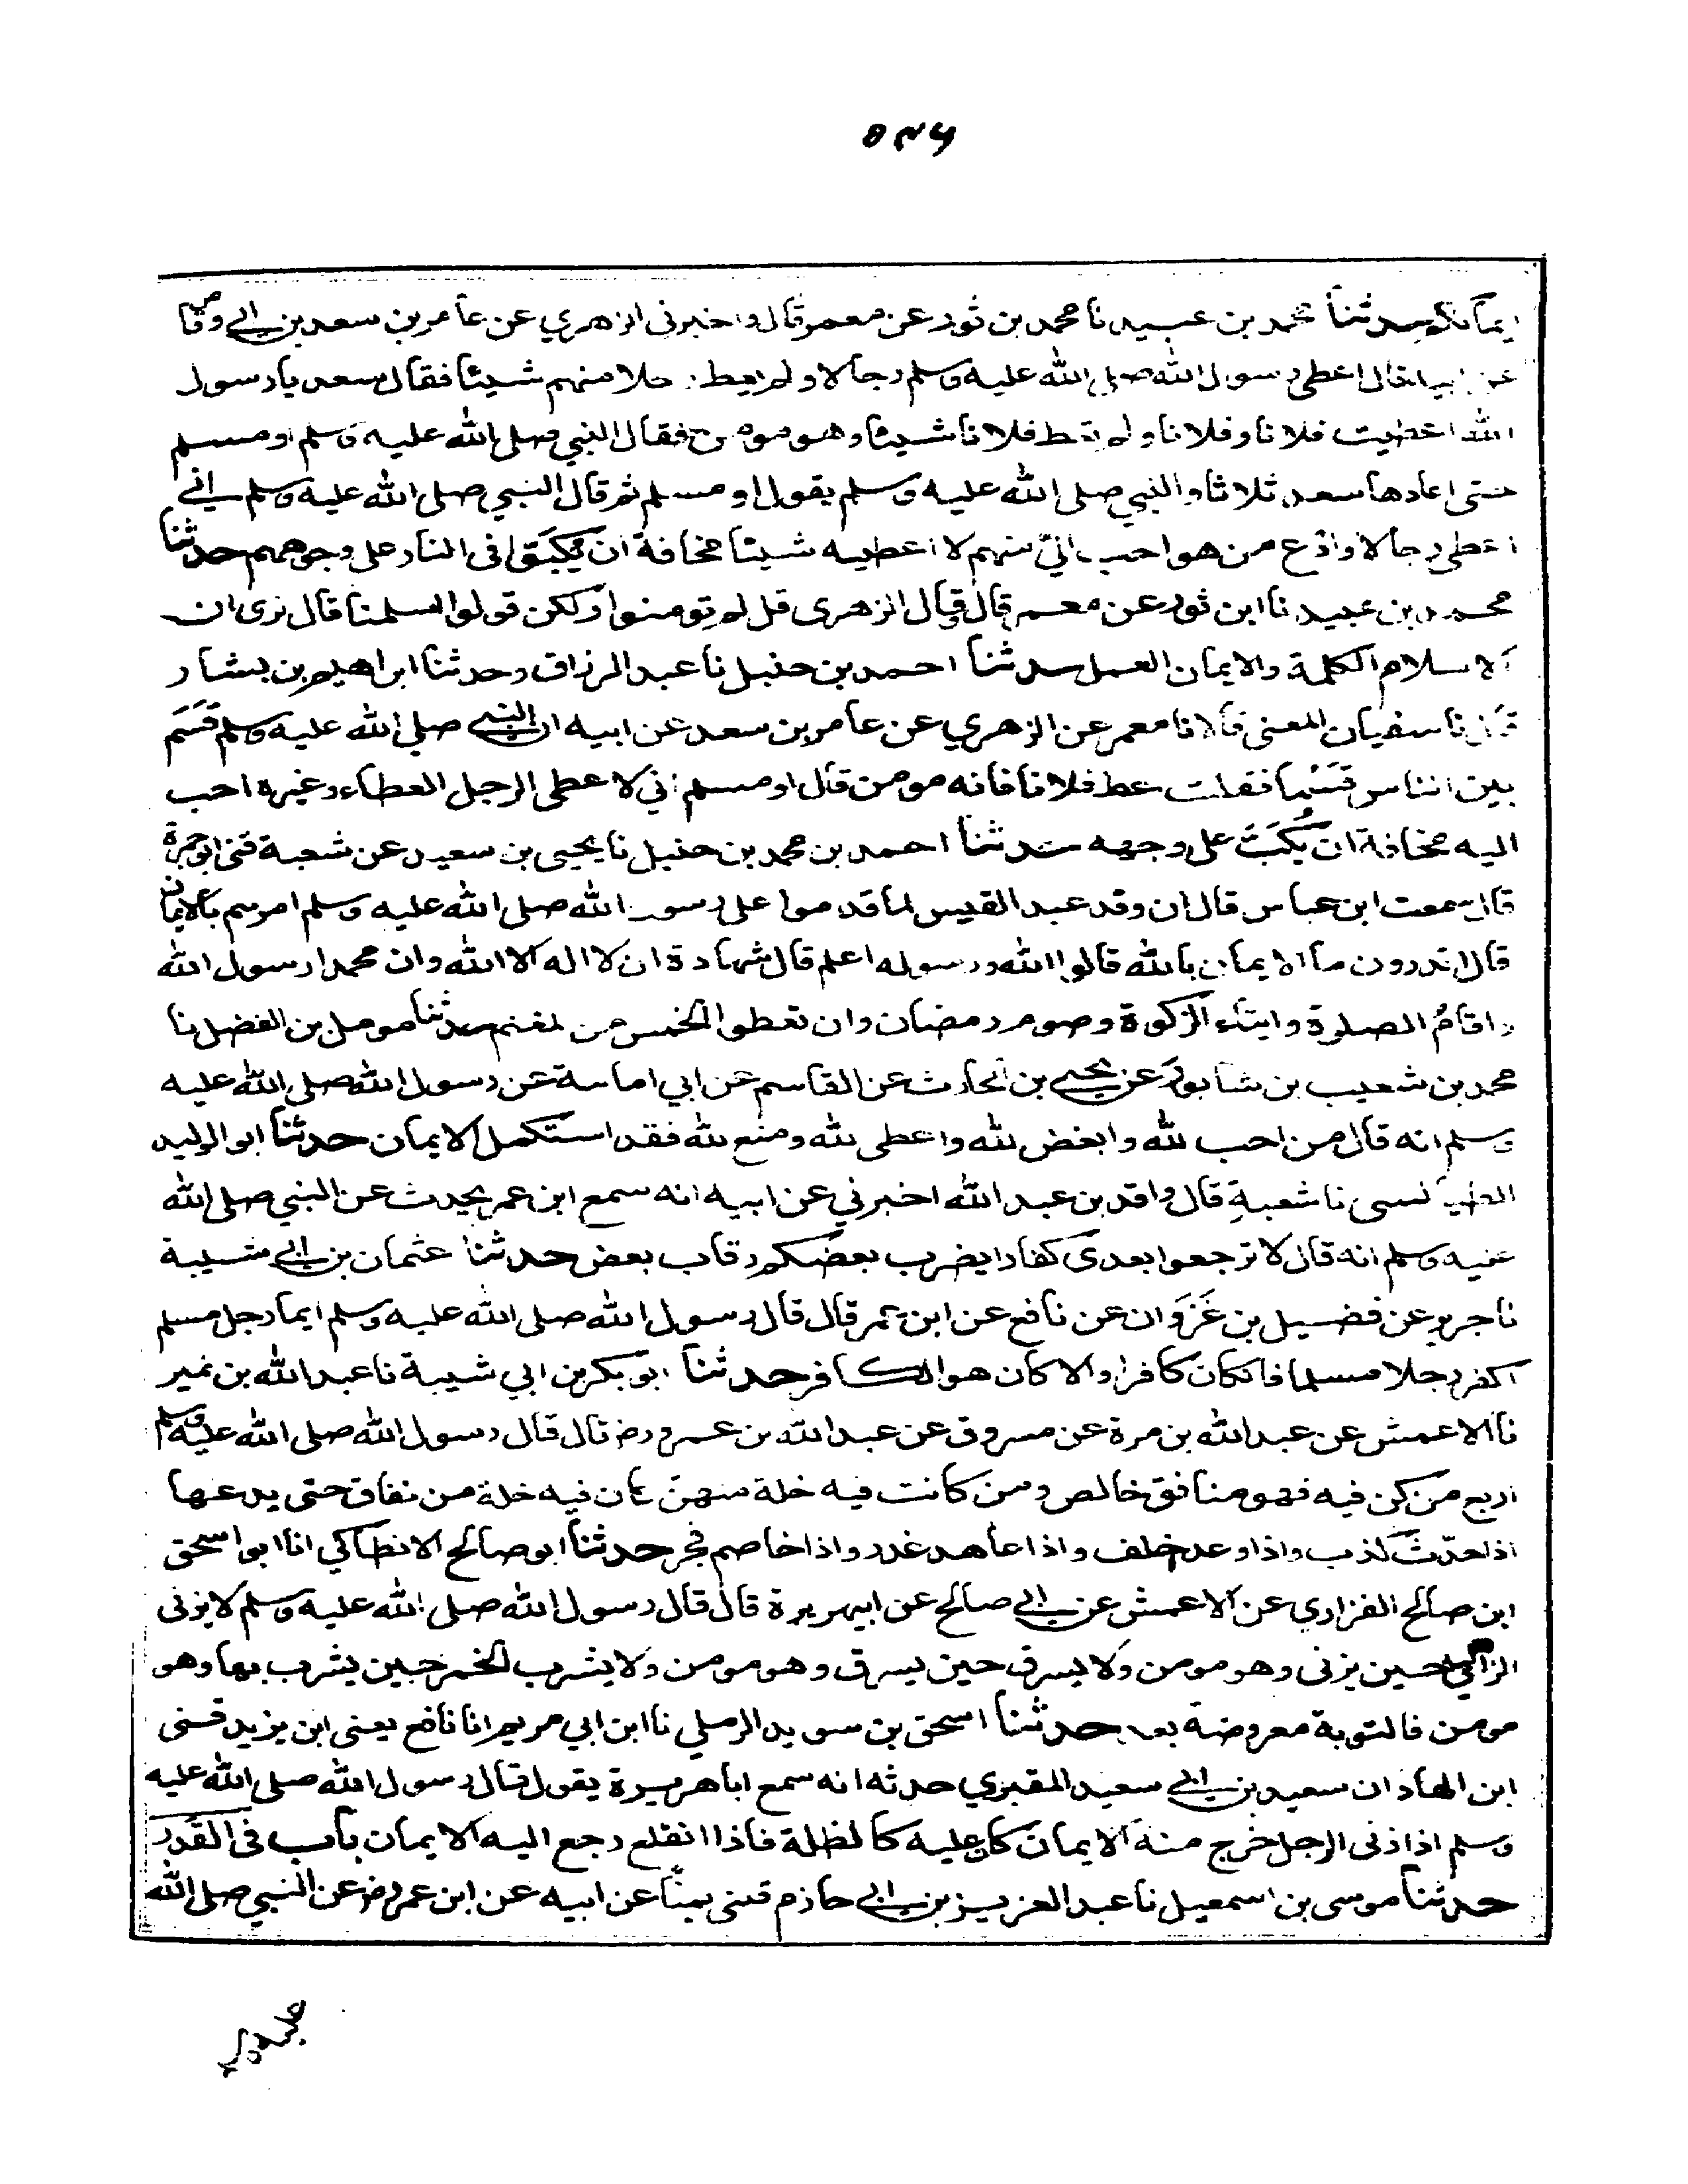 ٥٣٦
ايمانكم حدثنا محمد بن عبيد نا محمد بن ثور عن معمر قال واخبرني الزهري عن عامر بن سعد بن ابي وقاص
عن ابيه قال اعطى رسول الله صلى الله عليه وسلم رجالا ولم يعط رجلا منهم شيئا فقال سعد يا رسول
الله اعطيت فلانا وفلانا ولم تعط فلانا شيئا وهو مومن فقال النبي صلى الله عليه وسلم او مسلم
حتى اعادها سعد ثلاثا والنبي صلى الله عليه وسلم يقول او مسلم ثم قال النبي صلى الله عليه وسلم اني
اعطي رجالا وادع من هو احب الي منهم لا اعطيه شيئا مخافة ان يكبوا في النار على وجوههم حدثنا
محمد بن عبيد نا ابن ثور عن معمر قال وقال الزهري قل لم تومنوا ولكن قولوا اسلمنا قال نرى ان
الاسلام الكلمة والايمان العمل حدثنا احمد بن حنبل نا عبد الرزاق وحدثنا ابراهيم بن بشار
قال نا سفيان المعنى قالا نا معمر عن الزهري عن عامر بن سعد عن ابيه ان النبي صلى الله عليه وسلم قَسَمَ
بين الناس قَسْمًا فقلت اعط فلانا فانه مومن قال او مسلم اني لاعطي الرجل العطاء وغيره احب
اليه مخافة ان يُكَبَّ على وجهه حدثنا احمد بن محمد بن حنبل نا يحيى بن سعيد عن شعبة قثني ابو جمرة
قال سمعت ابن عباس قال ان وفد عبد القيس لما قدموا على رسول الله صلى الله عليه وسلم امرهم بالايمان
قال اتدرون ما الايمان بالله قالوا الله ورسوله اعلم قال شهادة ان لا اله الا الله وان محمدا رسول الله
واقامُ الصلوة وايتاء الزكوة وصوم رمضان وان تعطوا الخمس من المغنم حدثنا مومل بن الفضل نا
محمد بن شعيب بن شابور عن يحيى بن الحارث عن القاسم عن ابي امامة عن رسول الله صلى الله عليه
وسلم انه قال من احب لله وابغض لله واعطى لله ومنع لله فقد استكمل الايمان حدثنا ابو الوليد
الطيالسي نا شعبة قال واقد بن عبد الله اخبرني عن ابيه انه سمع ابن عمر يحدث عن النبي صلى الله
عليه وسلم انه قال لا ترجعوا بعدي كفارا يضرب بعضكم رقاب بعض حدثنا عثمان بن ابي شيبة
نا جرير عن فضيل بن غَزَوَان عن نافع عن ابن عمر قال قال رسول الله صلى الله عليه وسلم ايما رجل مسلم
اكفر رجلا مسلما فان كان كافرا والا كان هو الكافر حدثنا ابو بكر بن ابي شيبة نا عبد الله بن نمير
نا الاعمش عن عبد الله بن مرة عن مسروق عن عبد الله بن عمرو رض قال قال رسول الله صلى الله عليه وسلم
اربع من كن فيه فهو منافق خالص ومن كانت فيه خلة منهن كان فيه خلة من نفاق حتى يدعها
اذا حدّث كذب واذا وعد اخلف واذا عاهد غدر واذا خاصم فجر حدثنا ابو صالح الانطاكي انا ابو اسحق
ابن صالح الفزاري عن الاعمش عن ابي صالح عن ابي هريرة قال قال رسول الله صلى الله عليه وسلم لا يزني
الزاني حين يزني وهو مومن ولا يسرق حين يسرق وهو مومن ولا يشرب الخمر حين يشرب بها وهو
مومن فالتوبة معروضة بعد حدثنا اسحق بن سويد الرملي نا ابن ابي مريم انا نافع يعني ابن يزيد قثني
ابن الهاد ان سعيد بن ابي سعيد المقبري حدثه انه سمع ابا هريرة يقول قال رسول الله صلى الله عليه
وسلم اذا زنى الرجل خرج منه الايمان كان عليه كالظلة فاذا انقلع رجع اليه الايمان باب في القدر
حدثنا موسى بن اسمعيل نا عبد العزيز بن ابي حازم قثني بمنًا عن ابيه عن ابن عمر رض عن النبي صلى الله